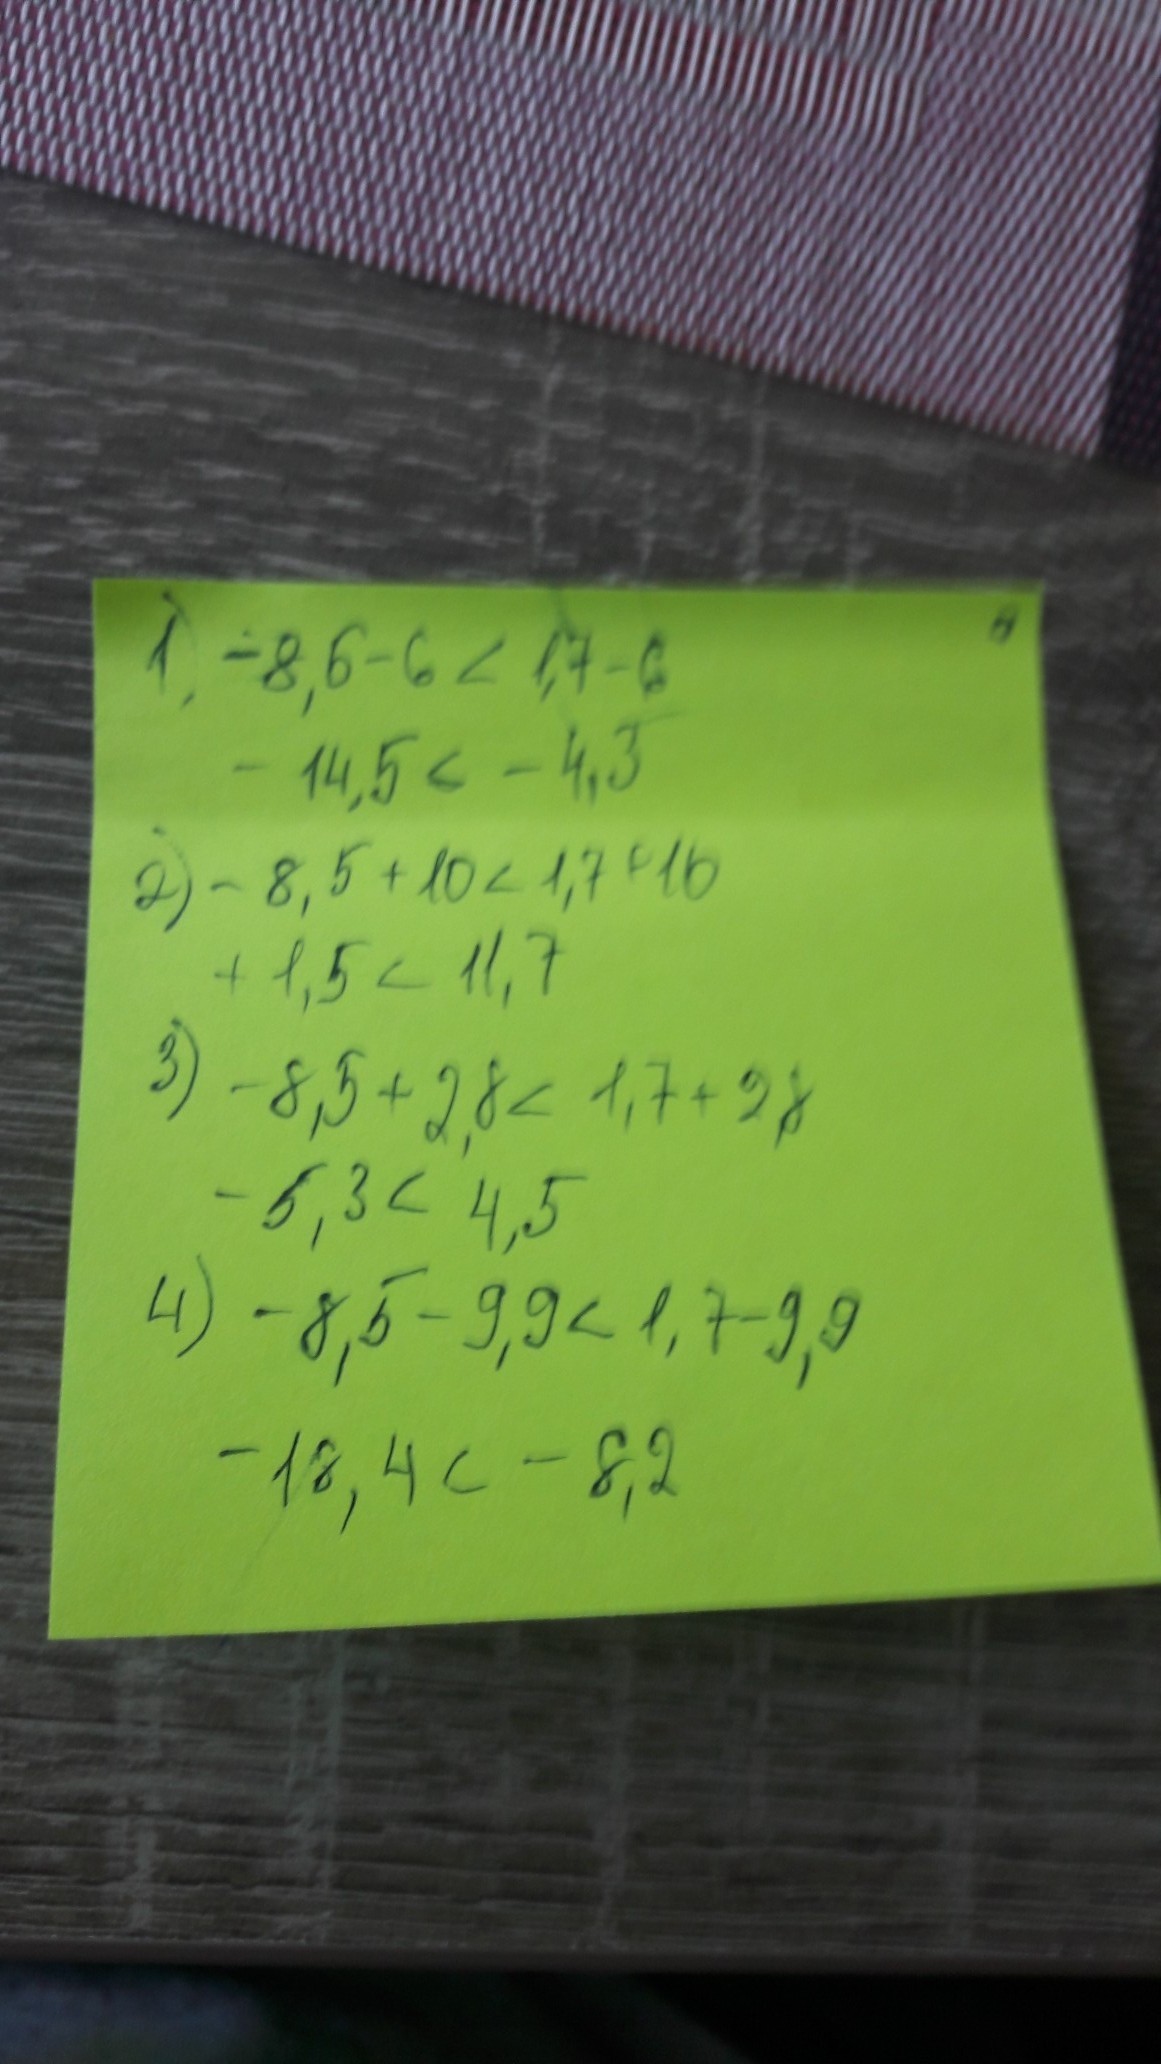 1) -8,5-6 < 1,7-6
- 14,5 < - 4,3
2) - 8,5+10 < 1,7+10
+ 1,5 < 11,7
3) -8,5+2,8 < 1,7+2,8
- 5,3 < 4,5
4) -8,5-9,9 < 1,7-9,9
-18,4 < - 8,2